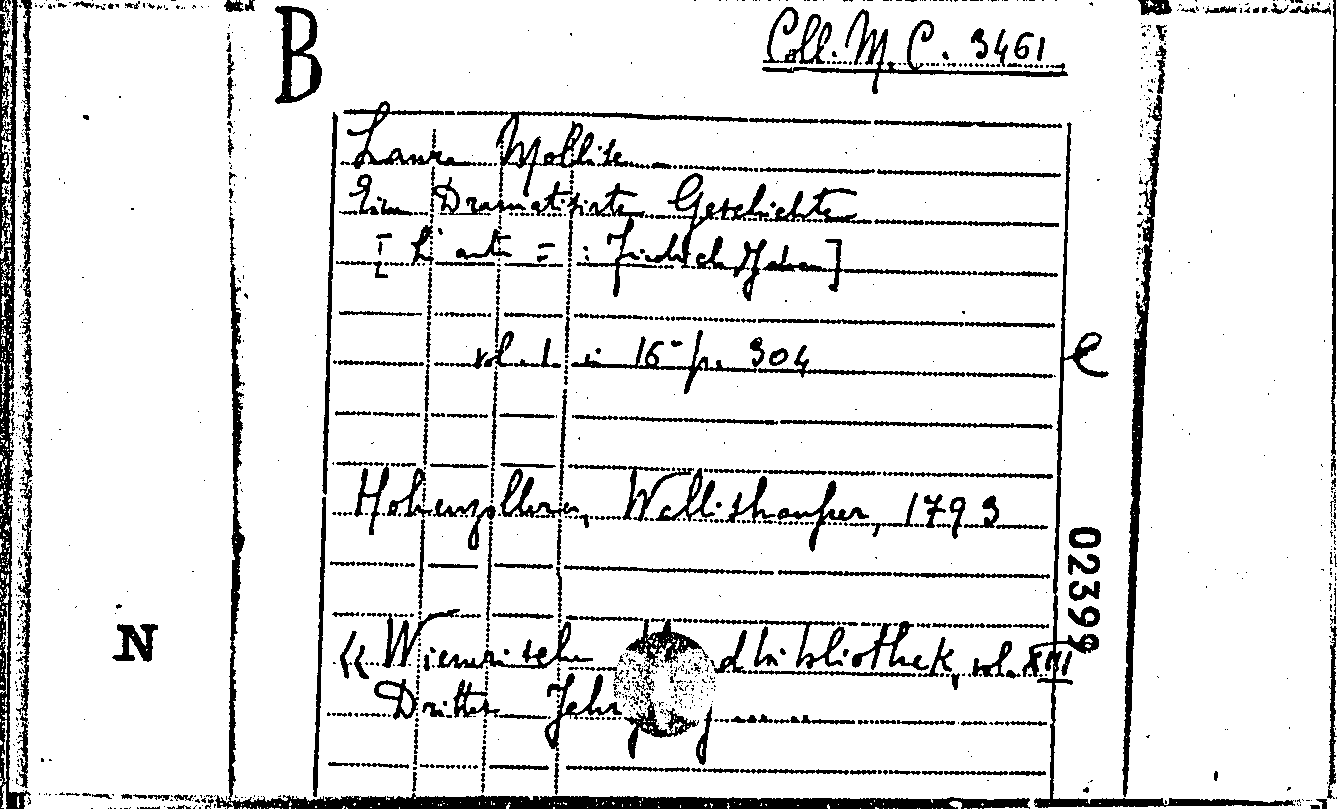 B
Coll. M. C. 3461
Laura Mollise
Eine Dramatisirte Geschichte
[L'aut = :
vol. 1 in 16° p. 304
e
Hohenzollern, Wallishausser, 1793
02399
«Wienerische dbibliothek, vol. XIII
N
Dritter Jahr